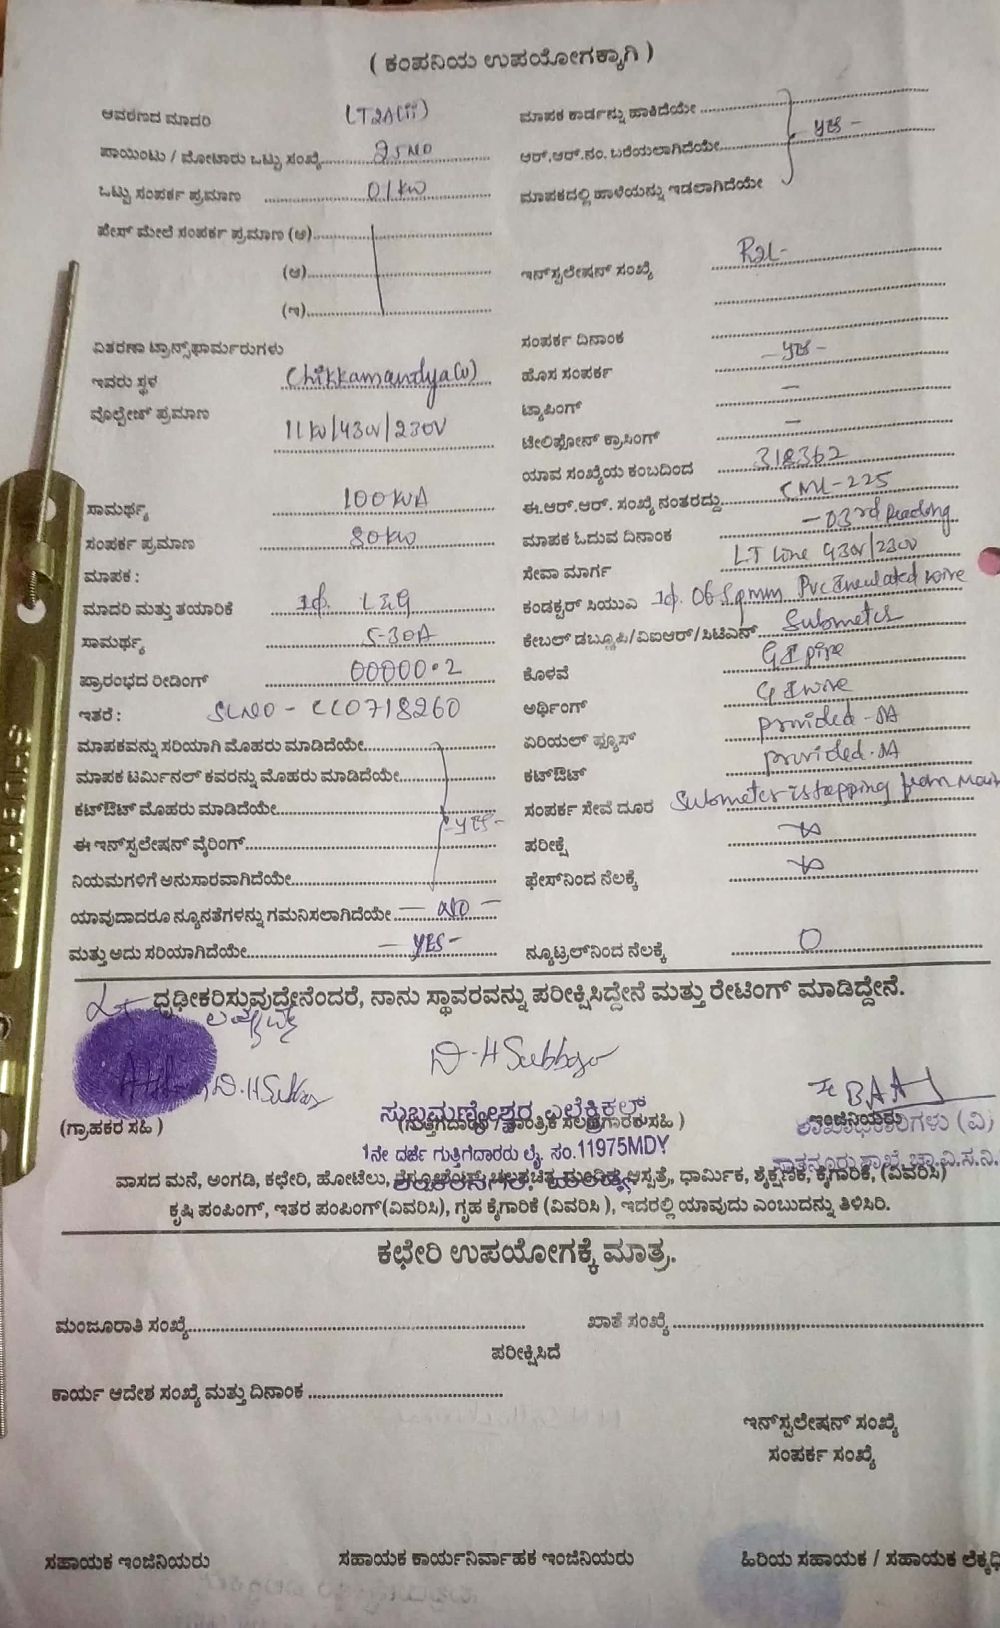 ( ಕಂಪನಿಯ ಉಪಯೋಗಕ್ಕಾಗಿ )
ಆವರಣದ ಮಾದರಿ LT2A(ii) ಮಾಪಕ ಕಾರ್ಡನ್ನು ಹಾಕಿದೆಯೇ
ಪಾಯಿಂಟು / ಮೋಟಾರು ಒಟ್ಟು ಸಂಖ್ಯೆ ಆರ್.ಆರ್.ನಂ. ಬರೆಯಲಾಗಿದೆಯೇ - yes -
ಒಟ್ಟು ಸಂಪರ್ಕ ಪ್ರಮಾಣ 01kw ಮಾಪಕದಲ್ಲಿ ಹಾಳೆಯನ್ನು ಇಡಲಾಗಿದೆಯೇ
ಪೇಸ್ ಮೇಲೆ ಸಂಪರ್ಕ ಪ್ರಮಾಣ (ಅ)
(ಆ) ಇನ್‌ಸ್ಟಲೇಷನ್ ಸಂಖ್ಯೆ
(ಇ)
ವಿತರಣಾ ಟ್ರಾನ್ಸ್‌ಫಾರ್ಮರುಗಳು ಸಂಪರ್ಕ ದಿನಾಂಕ
ಇವರು ಸ್ಥಳ Chikkamandya(v) ಹೊಸ ಸಂಪರ್ಕ - yes -
ವೊಲ್ಟೇಜ್ ಪ್ರಮಾಣ 11kv/430v/230v ಟ್ಯಾಪಿಂಗ್ -
ಟೇಲಿಫೋನ್ ಕ್ರಾಸಿಂಗ್ -
ಯಾವ ಸಂಖ್ಯೆಯ ಕಂಬದಿಂದ 318362
ಸಾಮರ್ಥ್ಯ 100kVA ಈ.ಆರ್.ಆರ್. ಸಂಖ್ಯೆ ನಂತರದ್ದು CML-225
ಸಂಪರ್ಕ ಪ್ರಮಾಣ 80kw ಮಾಪಕ ಓದುವ ದಿನಾಂಕ - 03rd Reading
ಮಾಪಕ : ಸೇವಾ ಮಾರ್ಗ LT Line 430v/230v
ಮಾದರಿ ಮತ್ತು ತಯಾರಿಕೆ 1φ. L&G ಕಂಡಕ್ಟರ್ ಸಿಯುಎ 1φ. 06 Sqmm PVC Insulated wire
ಸಾಮರ್ಥ್ಯ 5-30A ಕೇಬಲ್ ಡಬ್ಲೂಪಿ/ವಿಐಆರ್/ಸಿಟಿಎನ್ Submeter
ಪ್ರಾರಂಭದ ರೀಡಿಂಗ್ 00000.2 ಕೊಳವೆ GI pipe
ಇತರೆ : SLNO - CC0718260 ಅರ್ಥಿಂಗ್ GI wire
ಮಾಪಕವನ್ನು ಸರಿಯಾಗಿ ಮೊಹರು ಮಾಡಿದೆಯೇ ಏರಿಯಲ್ ಫ್ಯೂಸ್ provided-5A
ಮಾಪಕ ಟರ್ಮಿನಲ್ ಕವರನ್ನು ಮೊಹರು ಮಾಡಿದೆಯೇ ಕಟ್‌ಔಟ್ provided-5A
ಕಟ್‌ಔಟ್ ಮೊಹರು ಮಾಡಿದೆಯೇ - yes - ಸಂಪರ್ಕ ಸೇವೆ ದೂರ Submeter is tapping from Main
ಈ ಇನ್‌ಸ್ಟಲೇಷನ್ ವೈರಿಂಗ್ ಪರೀಕ್ಷೆ ∞
ನಿಯಮಗಳಿಗೆ ಅನುಸಾರವಾಗಿದೆಯೇ ಫೇಸ್‌ನಿಂದ ನೆಲಕ್ಕೆ ∞
ಯಾವುದಾದರೂ ನ್ಯೂನತೆಗಳನ್ನು ಗಮನಿಸಲಾಗಿದೆಯೇ - NO -
ಮತ್ತು ಅದು ಸರಿಯಾಗಿದೆಯೇ - YES - ನ್ಯೂಟ್ರಲ್‌ನಿಂದ ನೆಲಕ್ಕೆ 0
ಧೃಢೀಕರಿಸುವುದೇನೆಂದರೆ, ನಾನು ಸ್ಥಾವರವನ್ನು ಪರೀಕ್ಷಿಸಿದ್ದೇನೆ ಮತ್ತು ರೇಟಿಂಗ್ ಮಾಡಿದ್ದೇನೆ.
ಸುಬ್ರಮಣ್ಯೇಶ್ವರ ಎಲೆಕ್ಟ್ರಿಕಲ್
(ಗ್ರಾಹಕರ ಸಹಿ) (ಗುತ್ತಿಗೆದಾರರ / ತಾಂತ್ರಿಕ ಸಲಹಾಗಾರರ ಸಹಿ) ಇಂಜಿನಿಯರು
1ನೇ ದರ್ಜೆ ಗುತ್ತಿಗೆದಾರರು ಲೈ. ಸಂ.11975MDY
ವಾಸದ ಮನೆ, ಅಂಗಡಿ, ಕಛೇರಿ, ಹೋಟೆಲು, ಆಸ್ಪತ್ರೆ, ಧಾರ್ಮಿಕ, ಶೈಕ್ಷಣಿಕ, ಕೈಗಾರಿಕೆ, (ವಿವರಿಸಿ)
ಕೃಷಿ ಪಂಪಿಂಗ್, ಇತರ ಪಂಪಿಂಗ್(ವಿವರಿಸಿ), ಗೃಹ ಕೈಗಾರಿಕೆ (ವಿವರಿಸಿ), ಇದರಲ್ಲಿ ಯಾವುದು ಎಂಬುದನ್ನು ತಿಳಿಸಿರಿ.
ಕಛೇರಿ ಉಪಯೋಗಕ್ಕೆ ಮಾತ್ರ.
ಮಂಜೂರಾತಿ ಸಂಖ್ಯೆ ಖಾತೆ ಸಂಖ್ಯೆ
ಪರೀಕ್ಷಿಸಿದೆ
ಕಾರ್ಯ ಆದೇಶ ಸಂಖ್ಯೆ ಮತ್ತು ದಿನಾಂಕ
ಇನ್‌ಸ್ಟಲೇಶನ್ ಸಂಖ್ಯೆ
ಸಂಪರ್ಕ ಸಂಖ್ಯೆ
ಸಹಾಯಕ ಇಂಜಿನಿಯರು ಸಹಾಯಕ ಕಾರ್ಯನಿರ್ವಾಹಕ ಇಂಜಿನಿಯರು ಹಿರಿಯ ಸಹಾಯಕ / ಸಹಾಯಕ